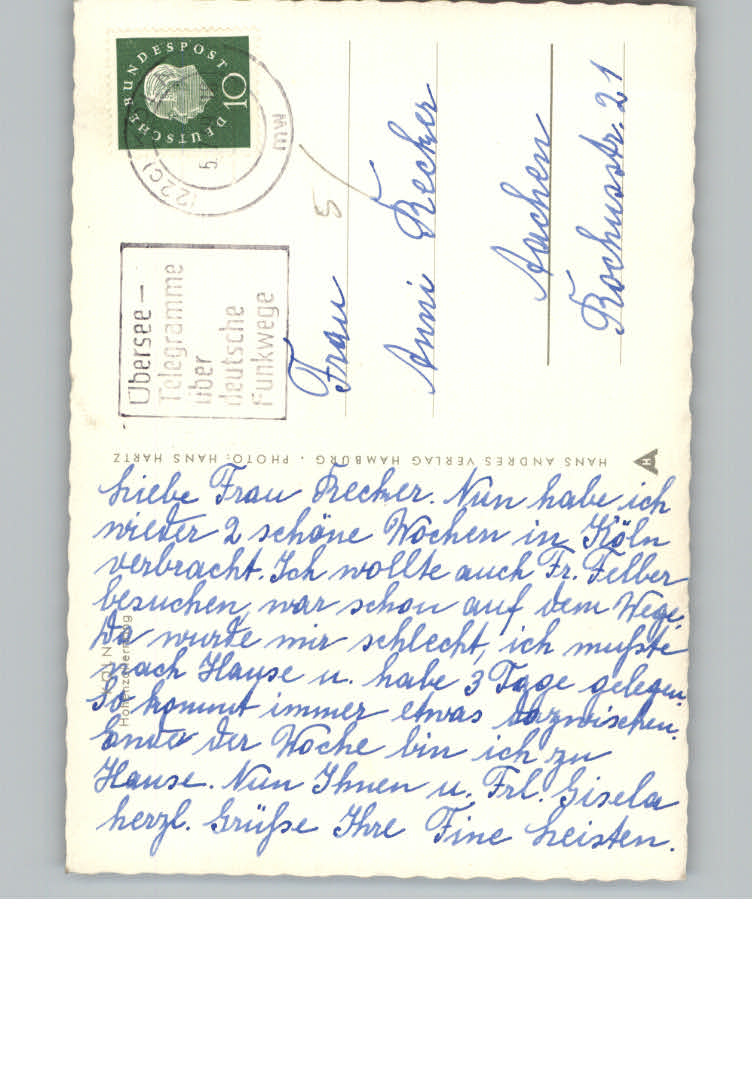 DEUTSCHE BUNDESPOST
10
(22c)
5.
mw
Übersee–
Telegramme
über
deutsche
Funkwege
5
Frau
Anni Recker
Aachen
Rochusstr. 21
HANS ANDRES VERLAG HAMBURG · PHOTO: HANS HARTZ
H
KÖLN
Hohenzollernring
Liebe Frau Recker. Nun habe ich
wieder 2 schöne Wochen in Köln
verbracht. Ich wollte auch Fr. Felber
besuchen, war schon auf dem Wege,
da wurde mir schlecht, ich mußte
nach Hause u. habe 3 Tage gelegen.
So kommt immer etwas dazwischen.
Ende der Woche bin ich zu
Hause. Nun Ihnen u. Frl. Gisela
herzl. Grüße Ihre Fine Leisten.